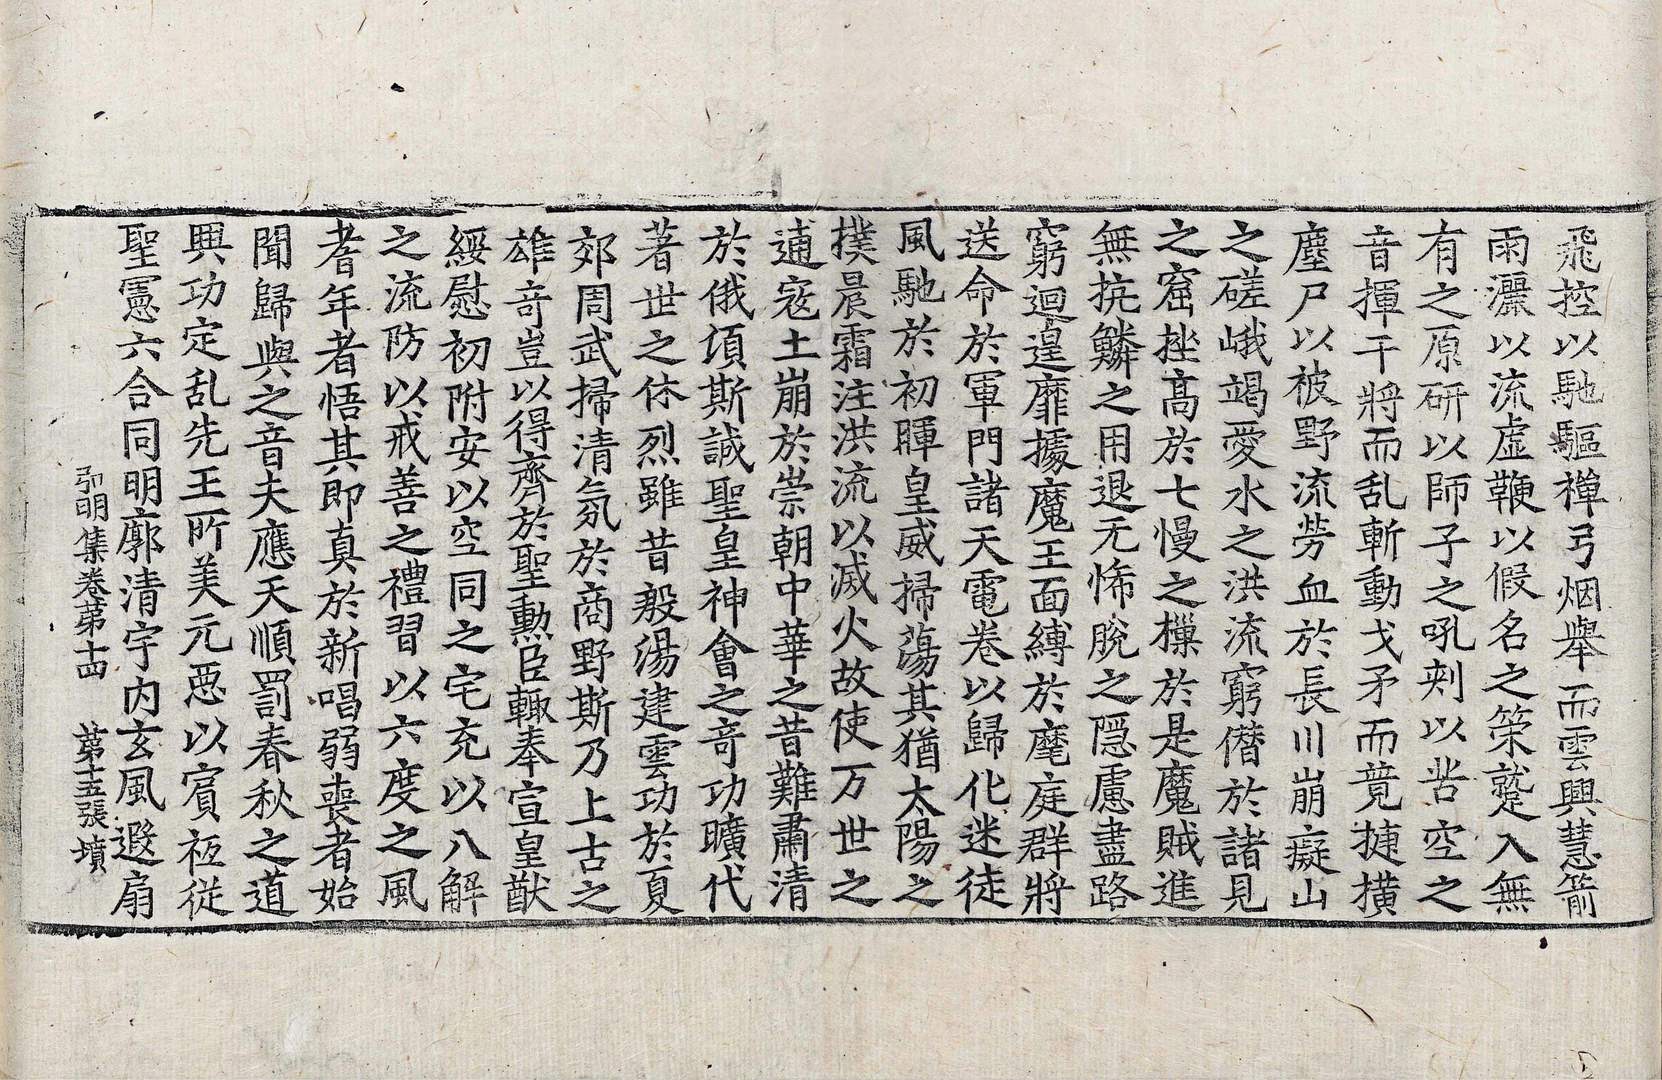 飛控以馳驅禪弓烟舉而雲興慧箭
雨灑以流虛鞭以假名之策蹵入無
有之原研以師子之吼刾以苦空之
音揮干將而乱斬動戈矛而竟捷橫
塵尸以被野流勞血於長川崩癡山
之嵯峨竭愛水之洪流窮僣於諸見
之窟挫高於七慢之檏於是魔賊進
無抗鱗之用退无怖脫之隱慮盡路
窮迴遑靡據魔王面縛於麾庭群將
送命於軍門諸天電卷以歸化迷徒
風馳於初暉皇威掃蕩其猶太陽之
撲晨霜注洪流以滅火故使万世之
逋寇土崩於崇朝中華之昔難肅清
於俄頃斯誠聖皇神會之奇功曠代
著世之休烈雖昔殷湯建雲功於夏
郊周武掃清氛於商野斯乃上古之
雄奇豈以得齊於聖勲臣輒奉宣皇猷
綏慰初附安以空同之宅充以八解
之流防以戒善之禮習以六度之風
耆年者悟其即真於新唱弱喪者始
聞歸與之音夫應天順罰春秋之道
興功定乱先王所美元惡以賓祗從
聖憲六合同明廓清宇内玄風遐扇
弘明集卷苐十四　苐十五張　墳